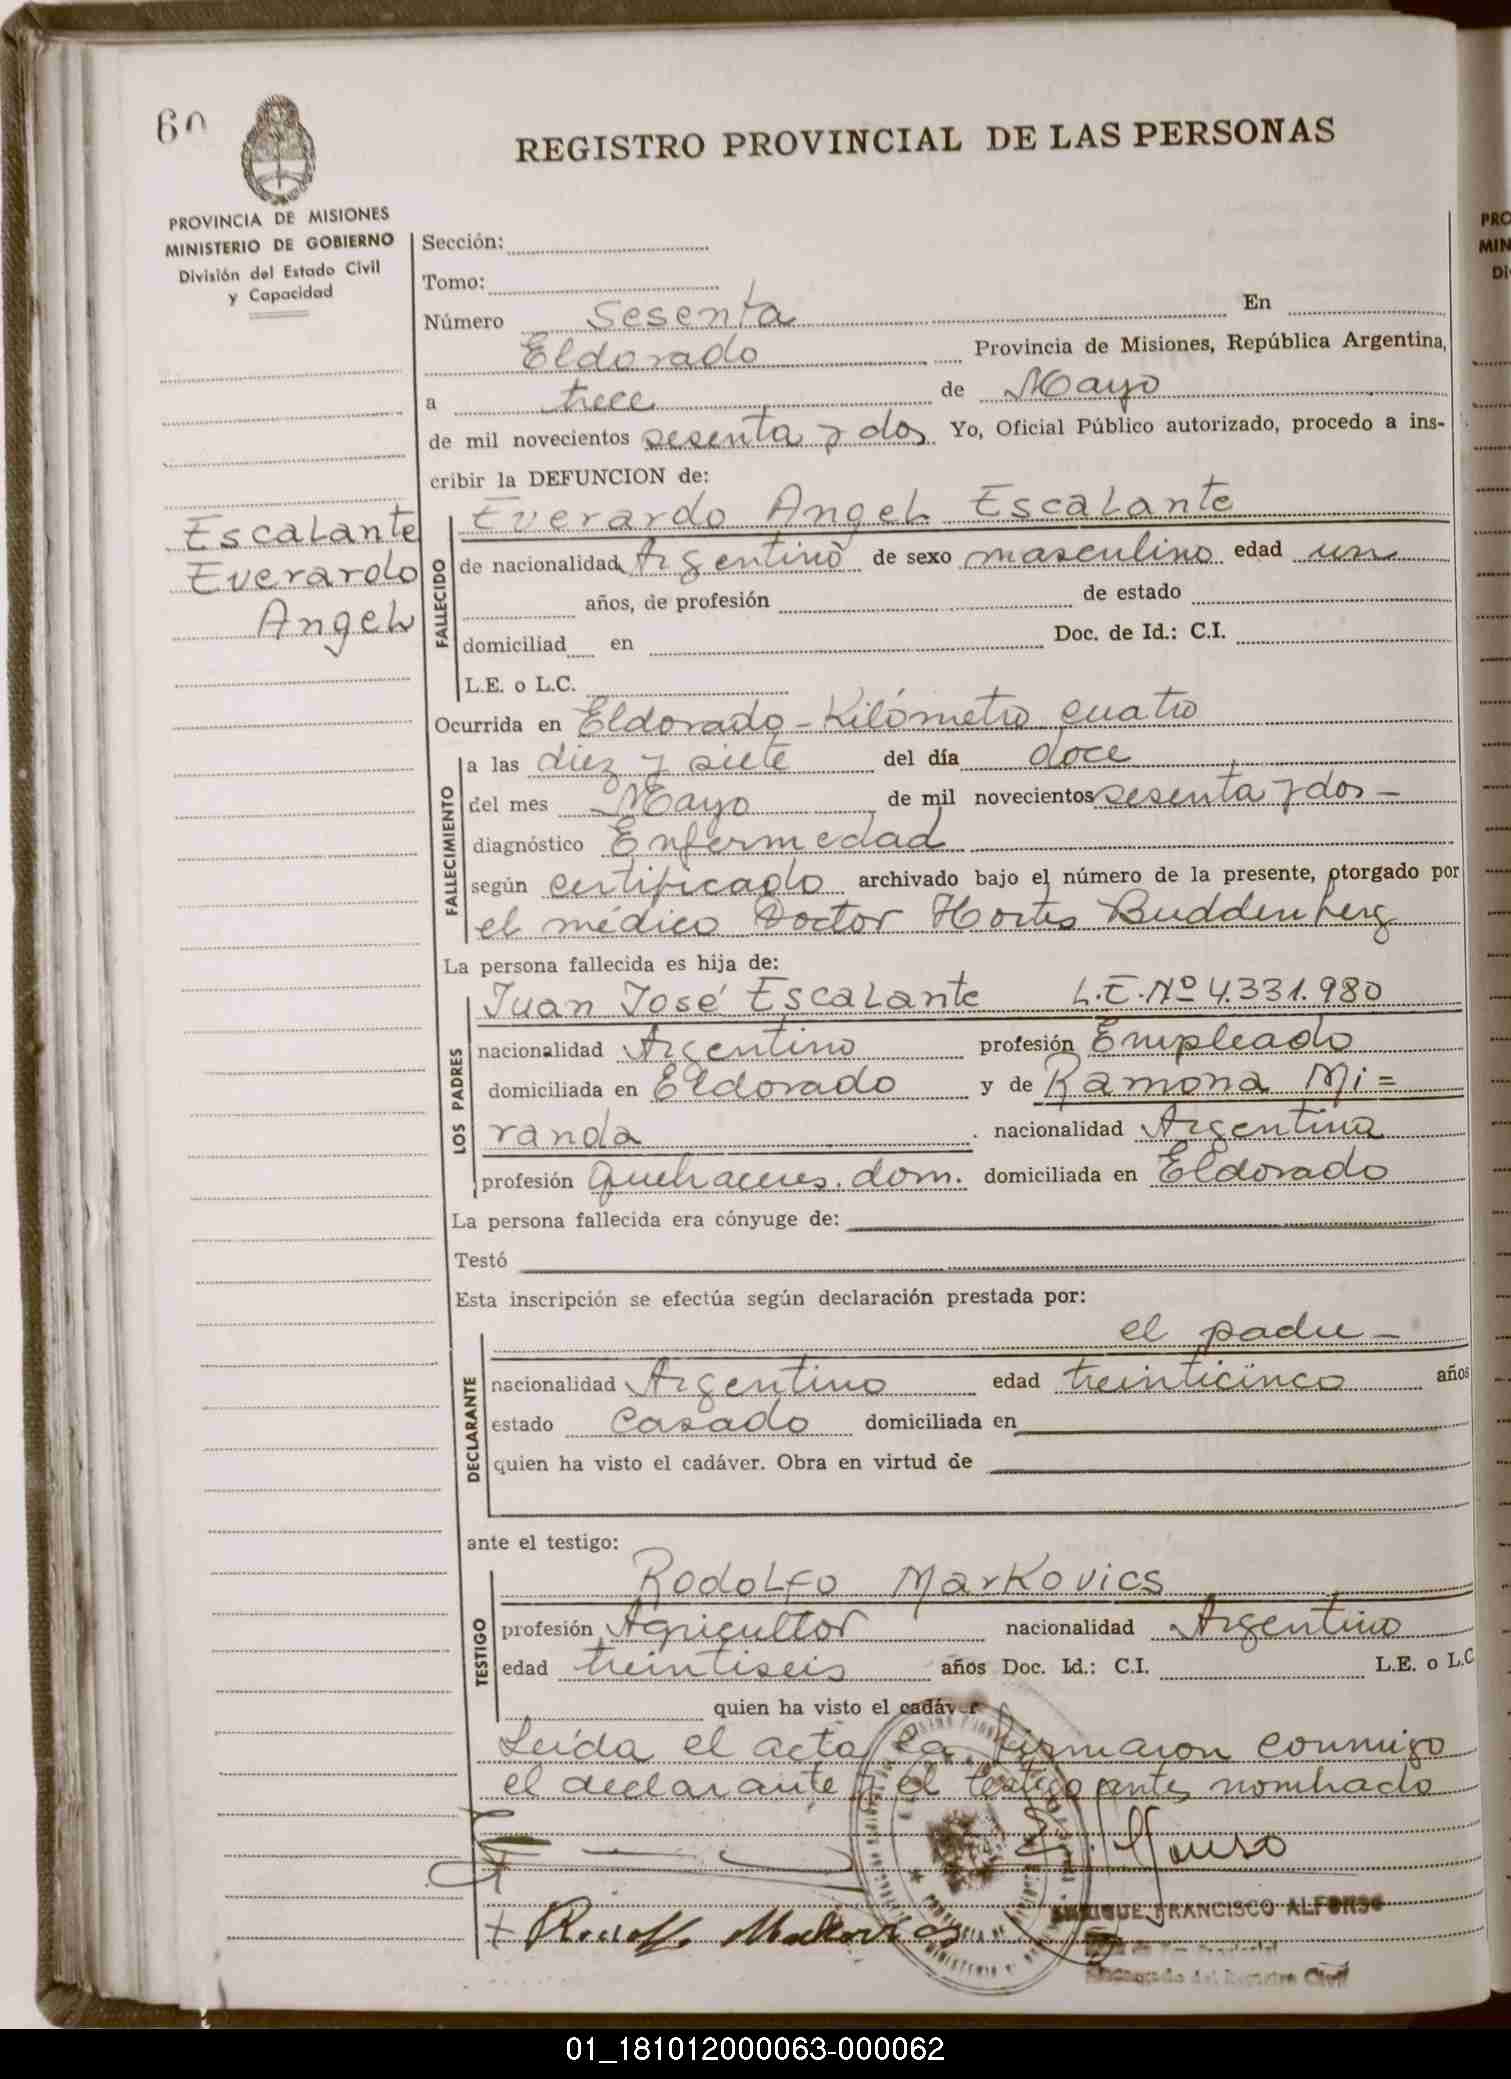 60
REGISTRO PROVINCIAL DE LAS PERSONAS
PROVINCIA DE MISIONES
MINISTERIO DE GOBIERNO
División del Estado Civil
y Capacidad
Sección:
Tomo:
Número Sesenta En
Eldorado Provincia de Misiones, República Argentina,
a trece de Mayo
de mil novecientos sesenta y dos Yo, Oficial Público autorizado, procedo a ins-
cribir la DEFUNCION de:
Escalante
Everardo
Angel
FALLECIDO
Everardo Angel Escalante
de nacionalidad Argentino de sexo masculino edad un
años, de profesión de estado
domiciliad en Doc. de Id.: C.I.
L.E. o L.C.
Ocurrida en Eldorado - Kilómetro cuatro
FALLECIMIENTO
a las diez y siete del día doce
del mes Mayo de mil novecientos sesenta y dos -
diagnóstico Enfermedad
según certificado archivado bajo el número de la presente, otorgado por
el médico Doctor Buddenberg
La persona fallecida es hija de:
LOS PADRES
Juan José Escalante L.E. Nº 4.331.980
nacionalidad Argentino profesión Empleado
domiciliada en Eldorado y de Ramona Mi=
randa . nacionalidad Argentina
profesión Quehaceres. dom. domiciliada en Eldorado
La persona fallecida era cónyuge de:
Testó
Esta inscripción se efectúa según declaración prestada por:
DECLARANTE
el padre -
nacionalidad Argentino edad treinticinco años
estado Casado domiciliada en
quien ha visto el cadáver. Obra en virtud de
ante el testigo:
TESTIGO
Rodolfo Markovics
profesión Agricultor nacionalidad Argentino
edad treintiseis años Doc. Id.: C.I. L.E. o L.C
quien ha visto el cadáver
Leída el acta la firmaron conmigo
el declarante y el testigo antes nombrado
E. Alfonso
ENRIQUE FRANCISCO ALFONSO
Encargado del Registro Civil
+ Rodolfo Markovics
PRO
MIN
Di
01_181012000063-000062